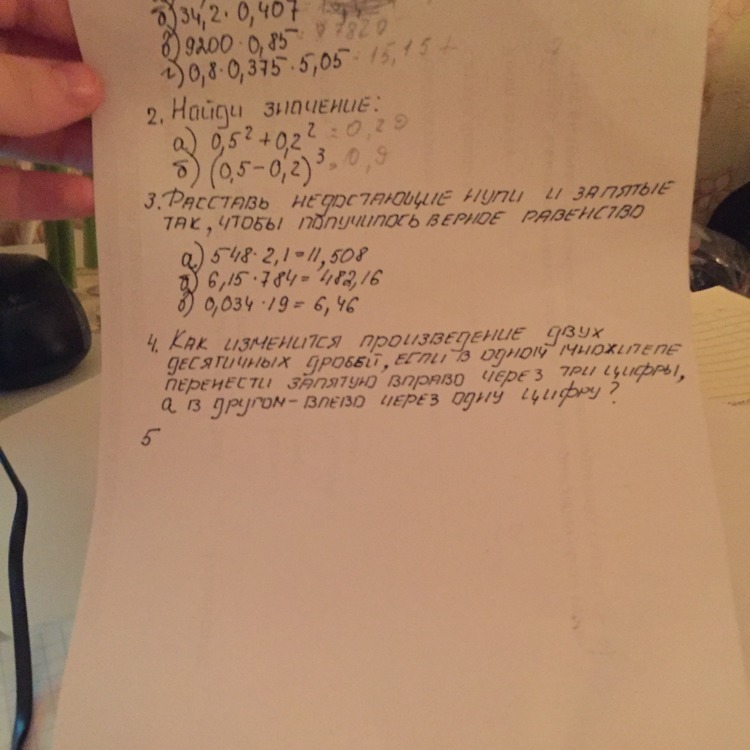 б) 34,2 · 0,407
в) 9200 · 0,85 = 7820
г) 0,8 · 0,375 · 5,05 = 15,15
2. Найди значение:
а) 0,5² + 0,2² = 0,29
б) (0,5 – 0,2)³ = 0,9
3. Расставь недостающие нули и запятые
так, чтобы получилось верное равенство
а) 548 · 2,1 = 11,508
б) 6,15 · 784 = 482,16
в) 0,034 · 19 = 6,46
4. Как изменится произведение двух
десятичных дробей, если в одном множителе
перенести запятую вправо через три цифры,
а в другом – влево через одну цифру?
5